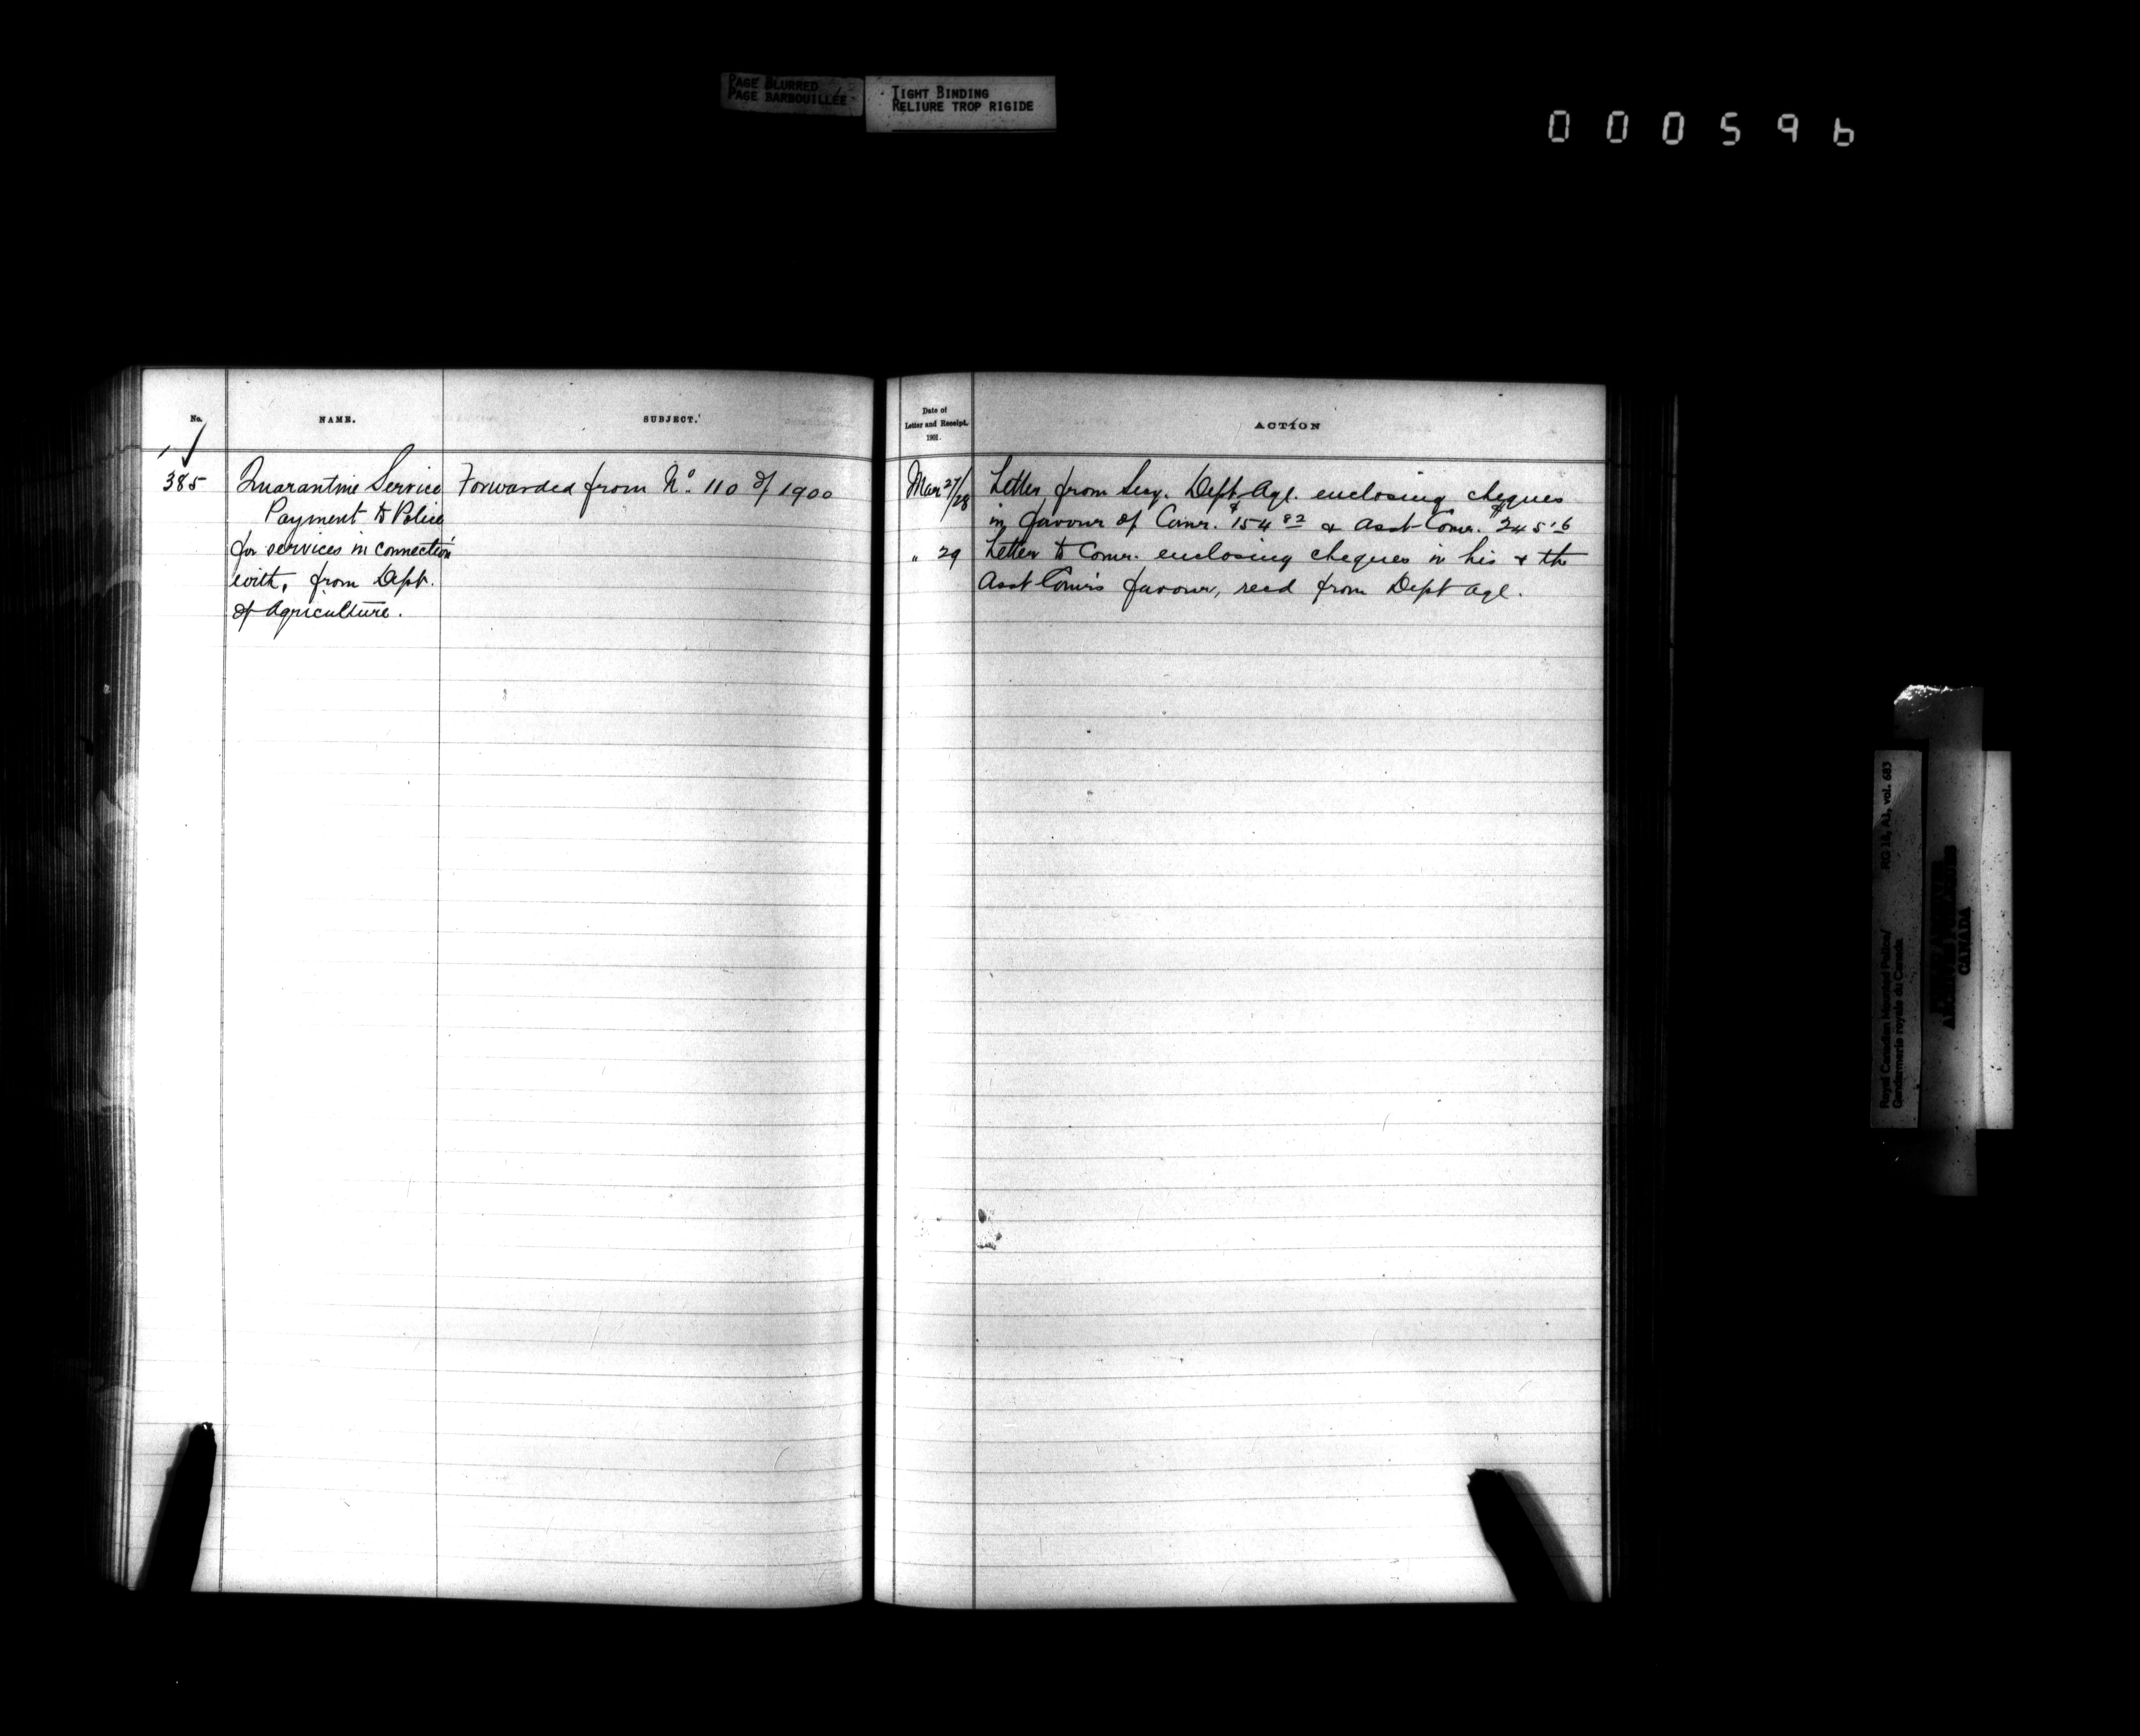 PAGE BLURRED
PAGE BARBOUILLÉE
TIGHT BINDING
RELIURE TROP RIGIDE
000596
No.
NAME.
SUBJECT.
385
Quarantine Service
Payment to Police
for services in connection
with, from Dept.
of Agriculture.
Forwarded from No. 110 of 1900
Date of
Letter and Receipt.
1901.
ACTION
Mar 27/28 Letter from Secy. Dept. Agl. enclosing cheques
in favour of Comr. $154 82 & Asst Comr. $245.16
" 29 Letter to Comr. enclosing cheques in his & the
Asst Comr's favour, recd from Dept Agl.
Royal Canadian Mounted Police/
Gendarmerie royale du Canada
RG 18, A1, vol. 683
CANADA